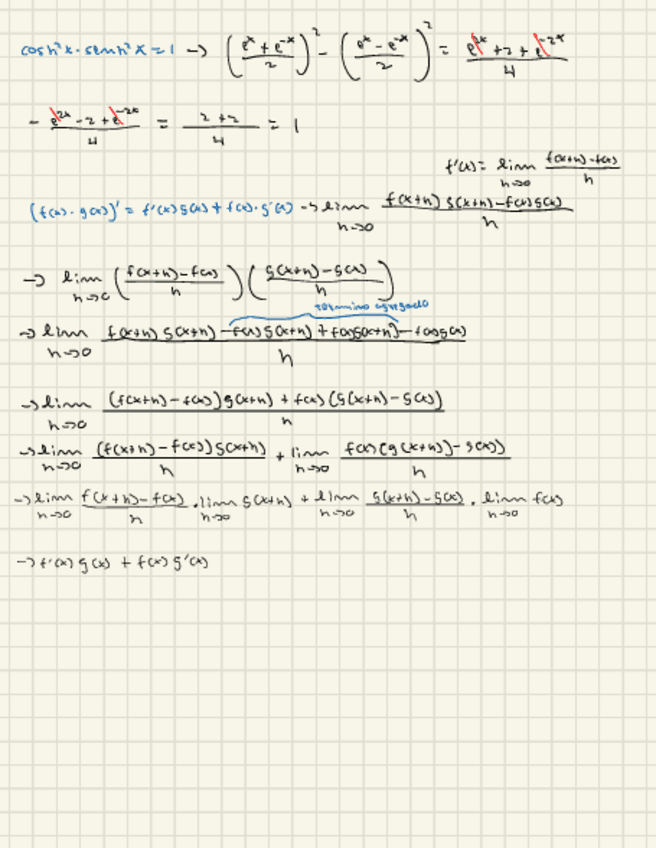 cosh²x - senh²x = 1 → ((e^x + e^-x)/2)² - ((e^x - e^-x)/2)² = (e^2x + 2 + e^-2x)/4
- (e^2x - 2 + e^-2x)/4 = (2 + 2)/4 = 1
f'(x) = lim h→0 (f(x+h) - f(x))/h
(f(x) · g(x))' = f'(x)g(x) + f(x) · g'(x) → lim h→0 (f(x+h) g(x+h) - f(x)g(x))/h
→ lim h→0 ((f(x+h) - f(x))/h) ((g(x+h) - g(x))/h)
termino agregado
→ lim h→0 (f(x+h) g(x+h) - f(x)g(x+h) + f(x)g(x+h) - f(x)g(x))/h
→ lim h→0 ((f(x+h) - f(x))g(x+h) + f(x)(g(x+h) - g(x)))/h
→ lim h→0 ((f(x+h) - f(x))g(x+h))/h + lim h→0 (f(x)(g(x+h)) - g(x)))/h
→ lim h→0 (f(x+h) - f(x))/h · lim h→0 g(x+h) + lim h→0 (g(x+h) - g(x))/h · lim h→0 f(x)
→ f'(x) g(x) + f(x) g'(x)